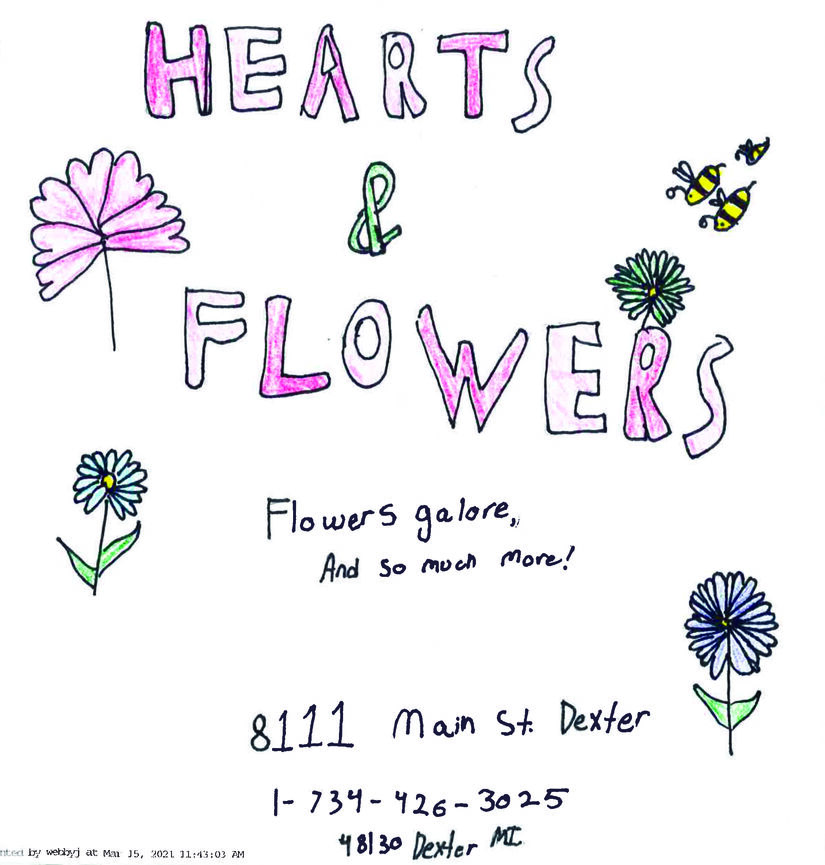 HEARTS
&
FLOWERS
Flowers galore,
And so much more!
8111 Main St. Dexter
1-734-426-3025
48130 Dexter MI
nted by webbyj at Mar 15, 2021 11:43:03 AM